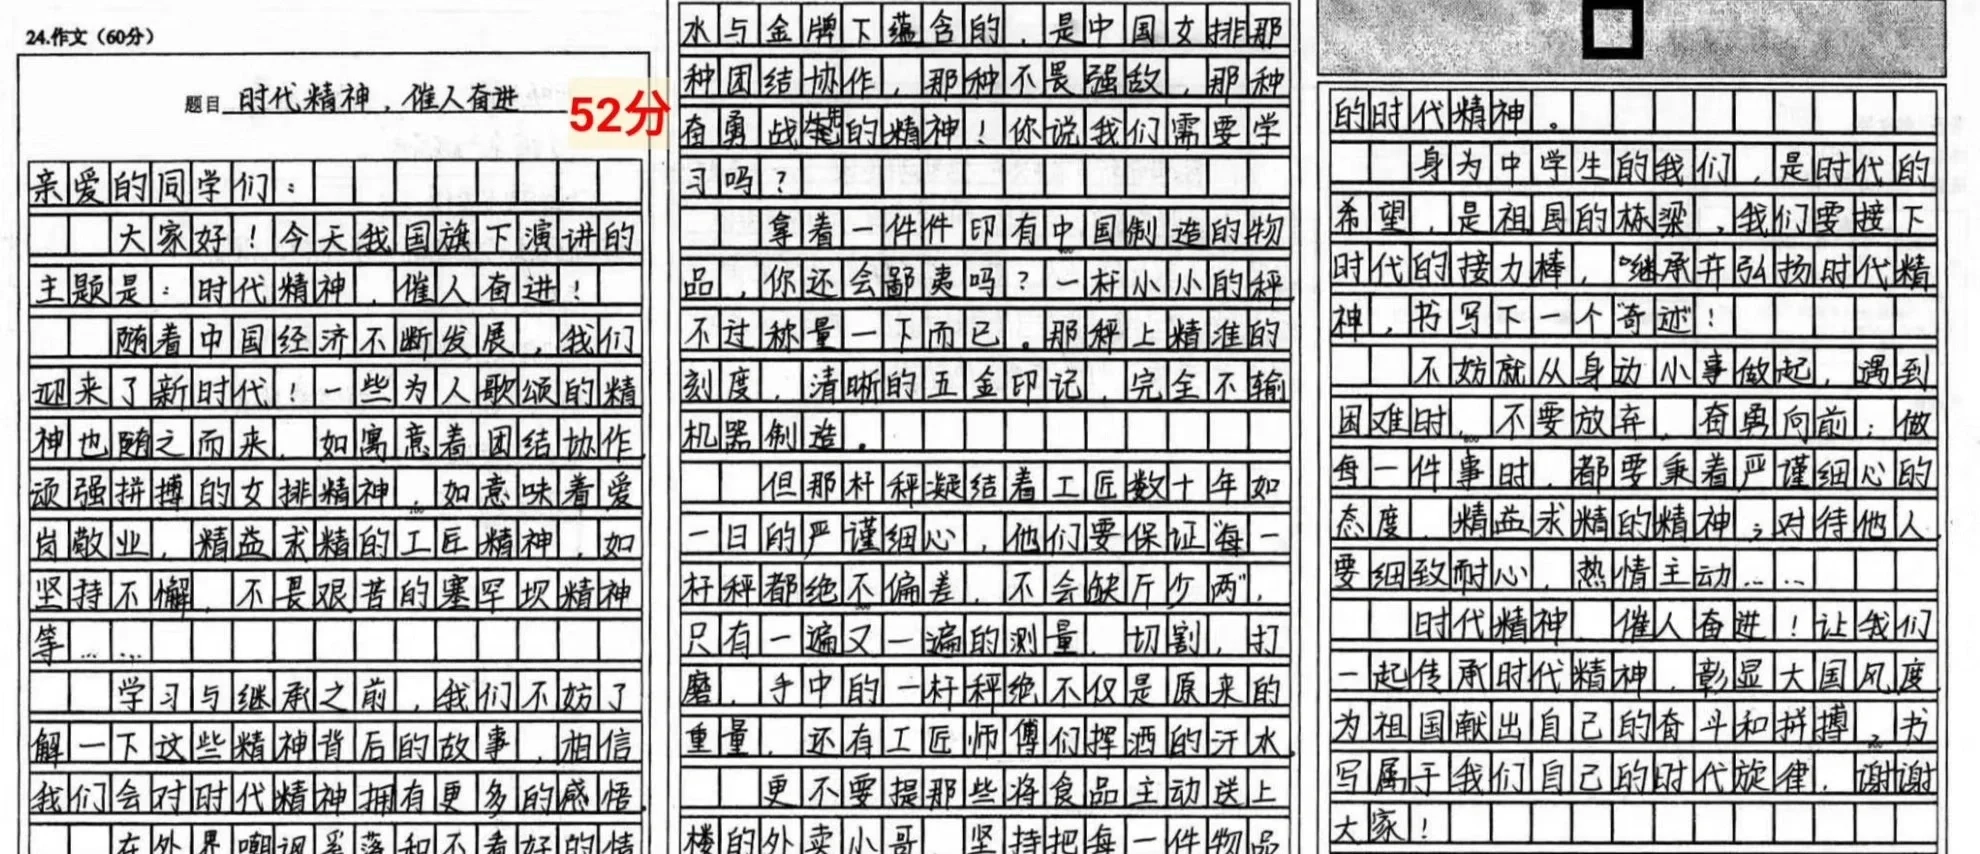 24.作文（60分）
题目 时代精神，催人奋进
52分
亲爱的同学们：
大家好！今天我国旗下演讲的
主题是：时代精神，催人奋进！
随着中国经济不断发展，我们
迎来了新时代！一些为人歌颂的精
神也随之而来，如寓意着团结协作，
顽强拼搏的女排精神，如意味着爱
岗敬业，精益求精的工匠精神，如
坚持不懈，不畏艰苦的塞罕坝精神
等……
学习与继承之前，我们不妨了
解一下这些精神背后的故事，相信
我们会对时代精神拥有更多的感悟。
在外界嘲讽奚落和不看好的情
水与金牌下蕴含的，是中国女排那
种团结协作，那种不畏强敌，那种
奋勇战的精神！你说我们需要学
习吗？
拿着一件件印有中国制造的物
品，你还会鄙夷吗？一杆小小的秤，
不过称量一下而已。那秤上精准的
刻度，清晰的五金印记，完全不输
机器制造。
但那杆秤凝结着工匠数十年如
一日的严谨细心，他们要保证“每一
杆秤都绝不偏差，不会缺斤少两”，
只有一遍又一遍的测量，切割，打
磨，手中的一杆秤绝不仅是原来的
重量，还有工匠师傅们挥洒的汗水。
更不要提那些将食品主动送上
楼的外卖小哥，坚持把每一件物品
的时代精神。
身为中学生的我们，是时代的
希望，是祖国的栋梁，我们要接下
时代的接力棒，继承并弘扬时代精
神，书写下一个“奇迹”！
不妨就从身边小事做起，遇到
困难时，不要放弃，奋勇向前；做
每一件事时，都要秉着严谨细心的
态度，精益求精的精神；对待他人，
要细致耐心，热情主动……
时代精神，催人奋进！让我们
一起传承时代精神，彰显大国风度，
为祖国献出自己的奋斗和拼搏，书
写属于我们自己的时代旋律，谢谢
大家！